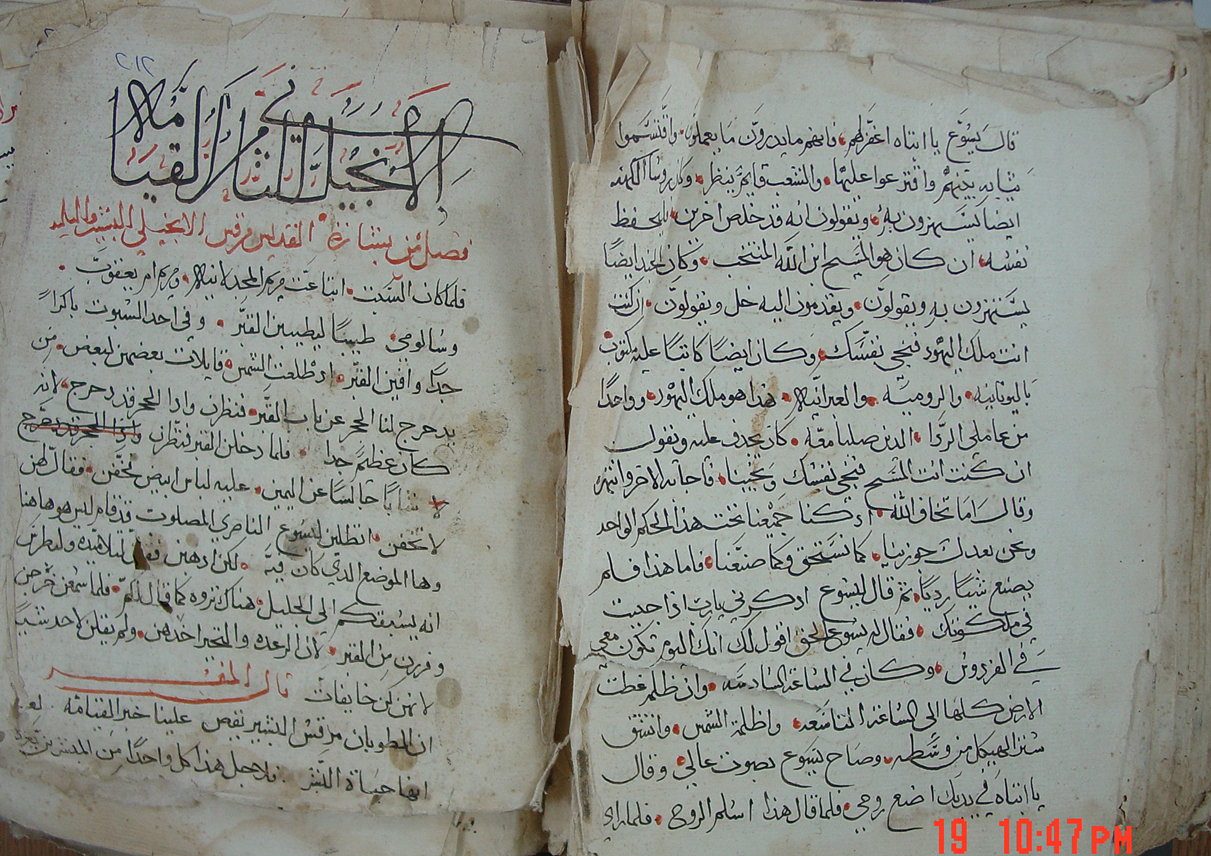 قال يسوع يا ابتاه اغفر لهم فانهم ما يدرون ما يعملون واقتسموا
ثيابه بينهم واقترعوا عليها والشعب قايم ينظر وكان روسا الكهنه
ايضا يستهزون به ويقولون انه قد خلص اخرين فليحفظ
نفسه ان كان هو المسيح ابن الله المنتخب وكان الجند ايضا
يستهزون به ويقولون ويقدمون اليه خل ويقولون ان كنت
انت ملك اليهود فنجي نفسك وكان ايضا كتابا عليه مكتوب
باليونانيه والروميه والعبرانيه هذا هو ملك اليهود وواحدا
من عاملي الردا الذين صلبا معه كان يجدف عليه ويقول
ان كنت انت المسيح فنجي نفسك ونجينا فاجابه الاخر وانتهره
وقال اما تخاف الله اذ كنا جميعنا تحت هذا الحكم الواحد
ونحن بعدل جوزينا كما نستحق وكما صنعنا فاما هذا فلم
يصنع شيا رديا ثم قال ليسوع اذكرني يا رب اذا جيت
في ملكوتك فقال له يسوع الحق اقول لك انك اليوم تكون معي
في الفردوس وكان في الساعه السادسه واذ ظلمه غطت
الارض كلها الى الساعه التاسعه واظلمة الشمس وانشق
ستر الهيكل من وسطه وصاح يسوع بصوت عالي وقال
يا ابتاه في يديك اضع روحي فلما قال هذا اسلم الروح فلما راي
٢١٢
الانجيل الثامن القيامه
فصل من بشارة القديس مرقس الانجيلي البشير والتلميد
فلما كان السبت ابتاعت مريم المجدلانيه ومريم ام يعقوب
وسالومي طيبا ليطيبن القبر وفي احد السبوت باكرا
جدا وافين القبر اذ طلعت الشمس قايلات بعضهن لبعض من
يدحرج لنا الحجر عن باب القبر فنظرن واذا الحجر قد دحرج لانه
كان عظيم جدا فلما دخلن القبر نظرن واذا الحجر قد دحرج
شابا جالسا عن اليمين عليه لباس ابيض فخفن فقال لهن
لا تخفن اتطلبن ليسوع الناصري المصلوب قد قام ليس هو هاهنا
وها الموضع الذي كان فيه لكن اذهبن لتلاميده ولبطرس
انه يسبقكم الى الجليل هناك تروه كما قال لكم فلما سمعن خرجن
وفررن من القبر لان الرعده والتحير اخدهن ولم يقلن لاحد شيا
لانهن كن خايفات قال المفسر
ان الطوبان مرقس البشير يقص علينا خبر القيامه
انها حياة البشر فلاجل هذا كل واحدا من المبشرين